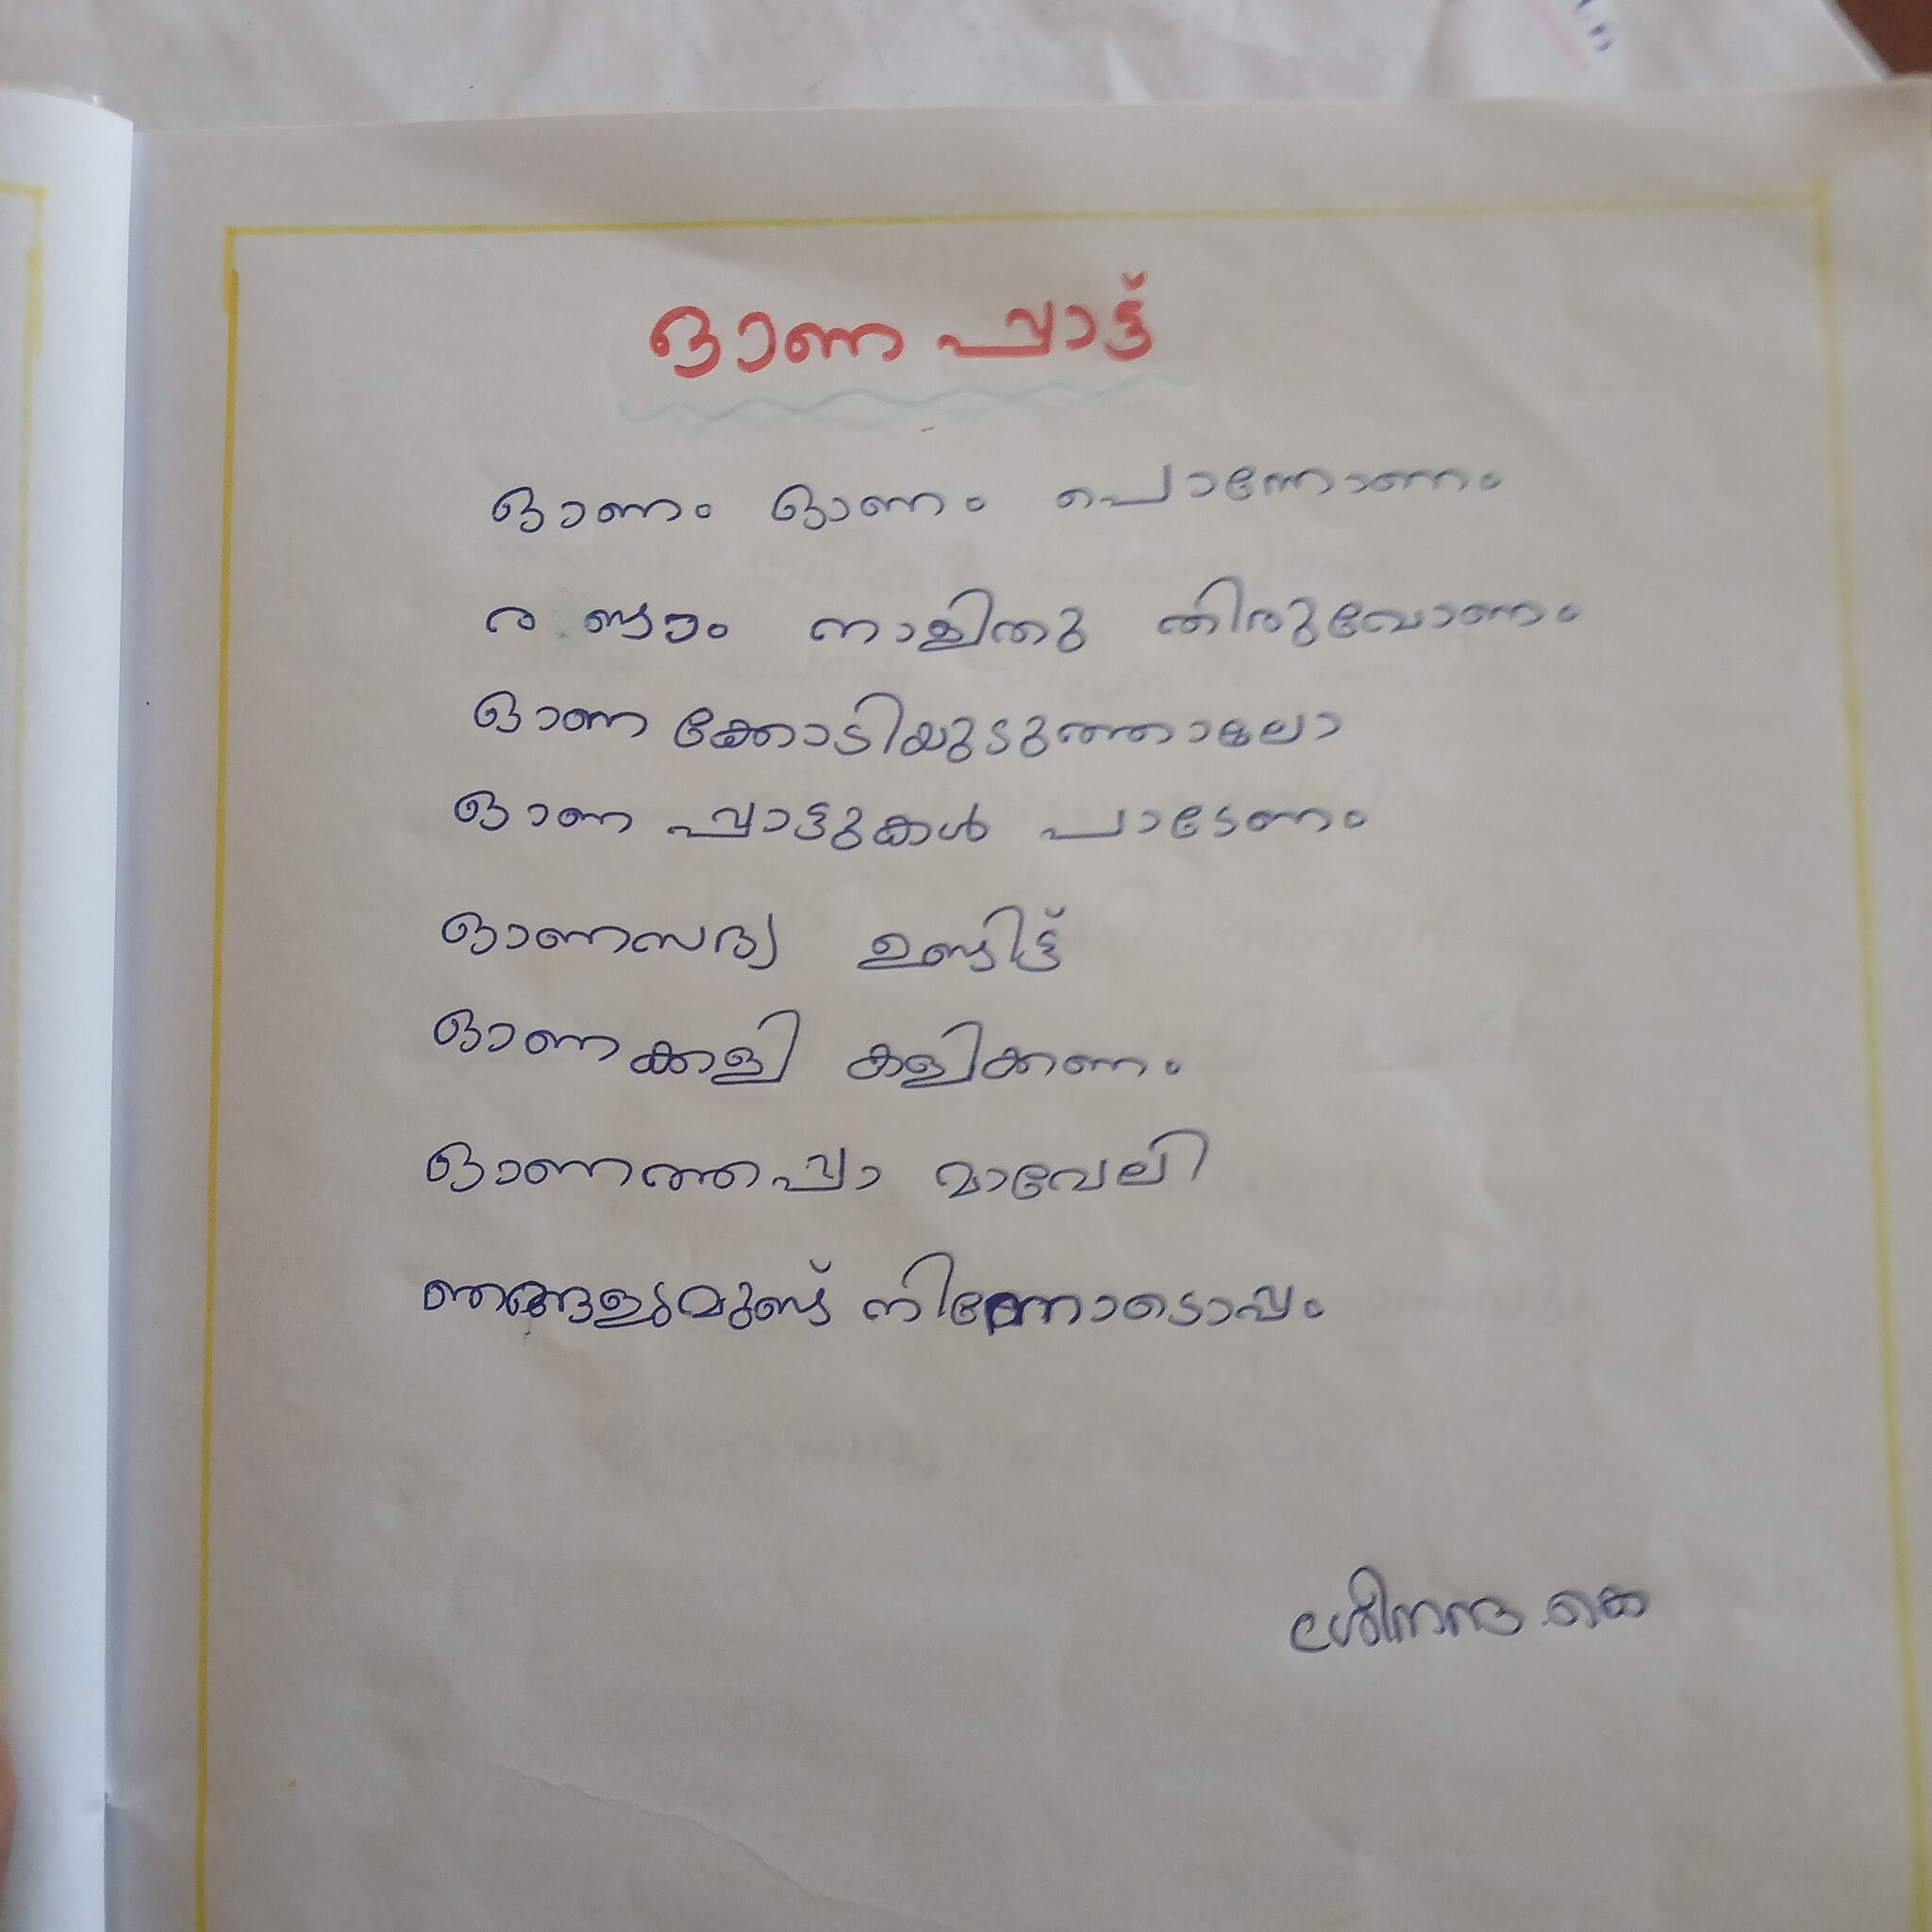 ഓണ പ്പാട്ട്
ഓണം ഓണം പൊന്നോണം
രണ്ടാം നാളിതു തിരുവോണം
ഓണ ക്കോടിയുടുത്താലോ
ഓണ പ്പാട്ടുകൾ പാടേണം
ഓണസദ്യ ഉണ്ടിട്ട്
ഓണക്കളി കളിക്കണം
ഓണത്തപ്പാ മാവേലി
ഞങ്ങളുമുണ്ട് നിന്നോടൊപ്പം
ശ്രീനന്ദ കെ